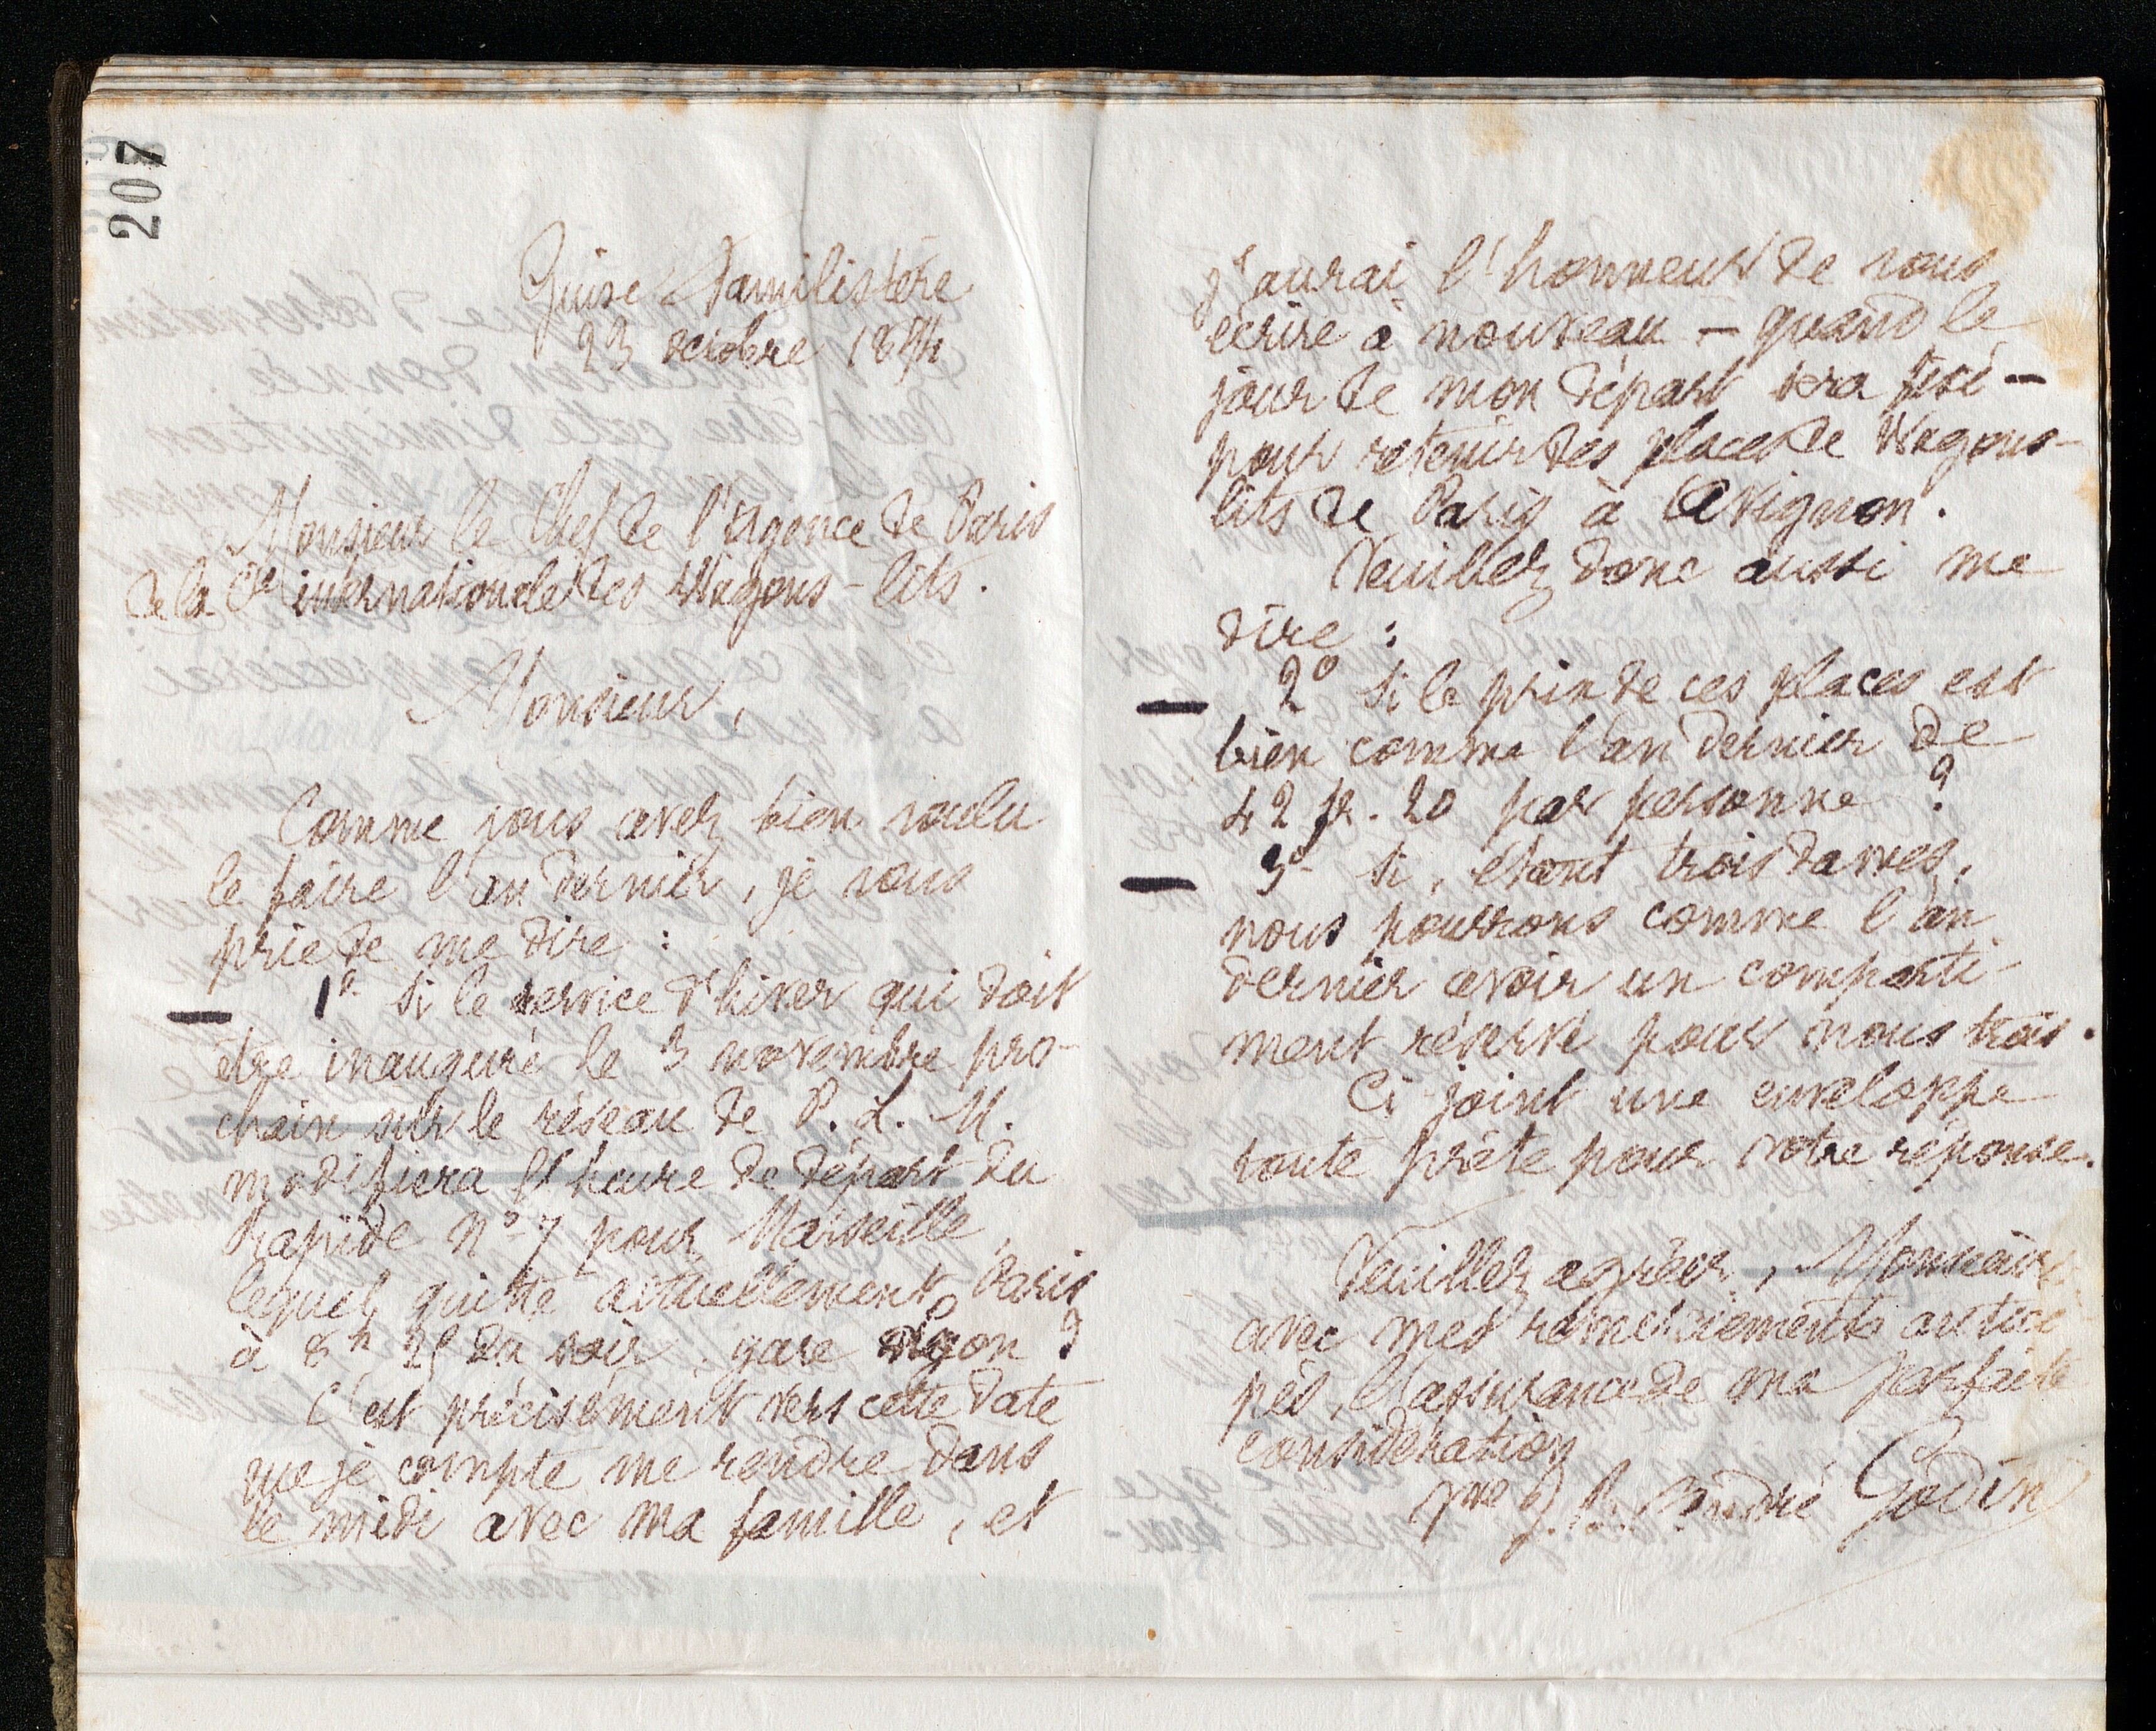 207
Guise Familistère
23 octobre 1894
Monsieur le Chef de l'Agence de Paris
de la Cie internationale des Wagons-lits.
Monsieur,
Comme vous avez bien voulu
le faire l'an dernier, je vous
prie de me dire :
— 1º Si le service d'hiver qui doit
être inauguré le 3 novembre pro-
chain sur le réseau de P. L. M.
modifiera l'heure de départ du
rapide nº 7 pour Marseille,
lequel quitte actuellement Paris
à 8h 25 du soir. gare Lyon ?
C'est précisément vers cette date
que je compte me rendre dans
le midi avec ma famille, et
j'aurai l'honneur de vous
écrire à nouveau — quand le
jour de mon départ sera fixé —
pour retenir des places de Wagons-
lits de Paris à Avignon.
Veuillez donc aussi me
dire :
— 2º Si le prix de ces places est
bien comme l'an dernier de
42 fr. 20 par personne ?
— 3º Si, étant trois dames,
nous pourrons comme l'an
dernier avoir un comparti-
ment réservé pour nous trois.
Ci-joint une enveloppe
toute prête pour votre réponse.
Veuillez agréer, Monsieur
avec mes remerciements antici
pés, l'assurance de ma parfaite
considération
Vve J. Bte André Godin